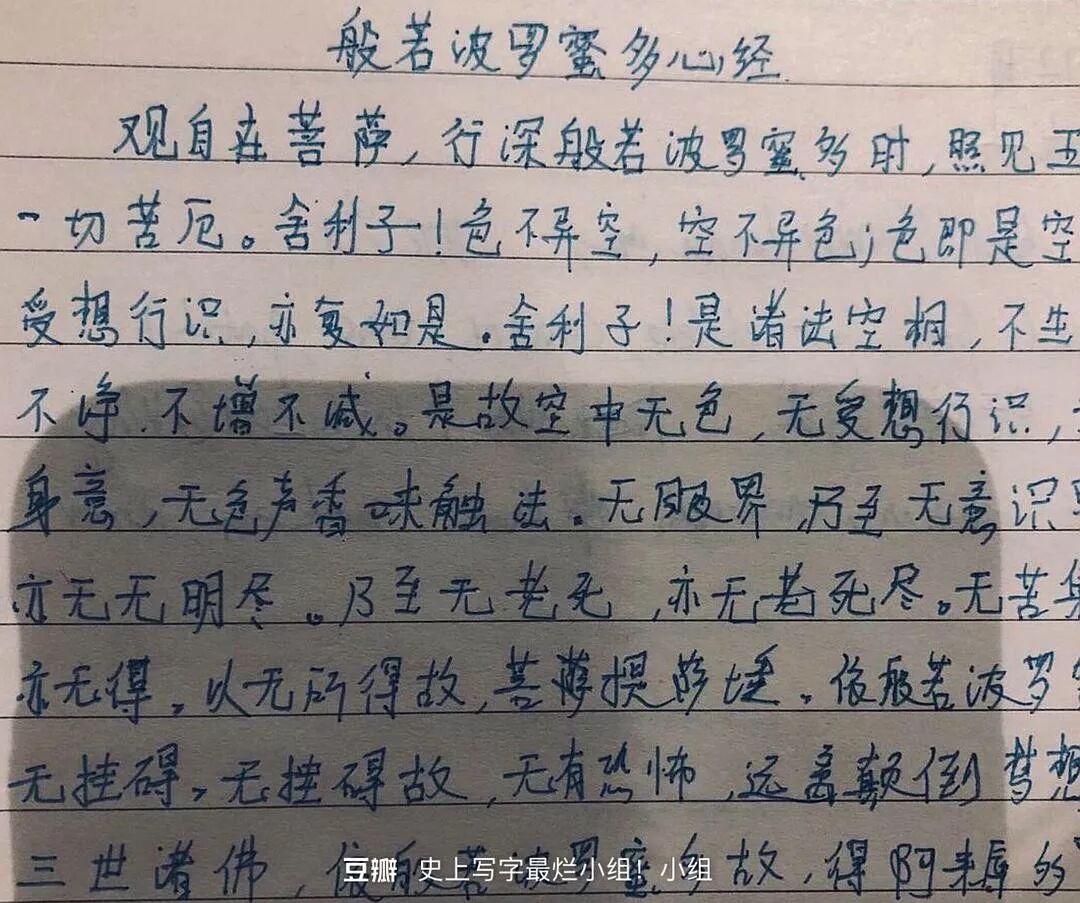 般若波罗蜜多心经
观自在菩萨，行深般若波罗蜜多时，照见五
一切苦厄。舍利子！色不异空，空不异色；色即是空
受想行识，亦复如是。舍利子！是诸法空相，不生
不净，不增不减。是故空中无色，无受想行识，
身意，无色声香味触法。无眼界，乃至无意识
亦无无明尽。乃至无老死，亦无老死尽。无苦集
亦无得。以无所得故，菩萨提萨埵。依般若波罗
无挂碍。无挂碍故，无有恐怖，远离颠倒梦想
三世诸佛，依般若波罗蜜多故，得阿耨多
豆瓣 史上写字最烂小组！小组